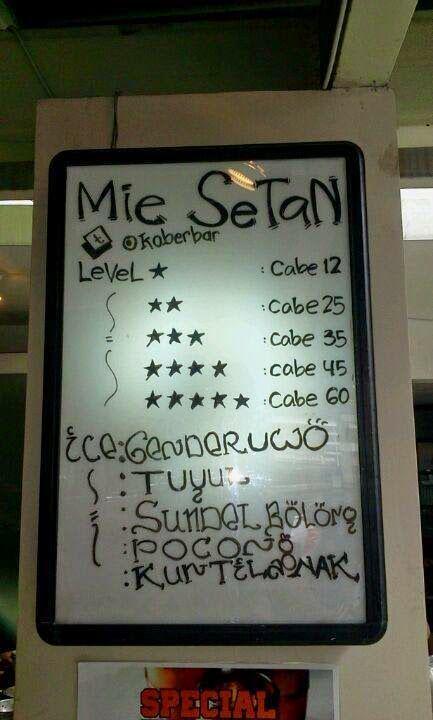 Mie SeTaN
@Koberbar
LeVeL ★ : Cabe 12
★★ : Cabe 25
= ★★★ : Cabe 35
★★★★ : Cabe 45
★★★★★ : Cabe 60
ice: GENDERUWO
: TUYUL
= : SUNDEL BOLONG
: POCONG
: KUNTILANAK
SPECIAL